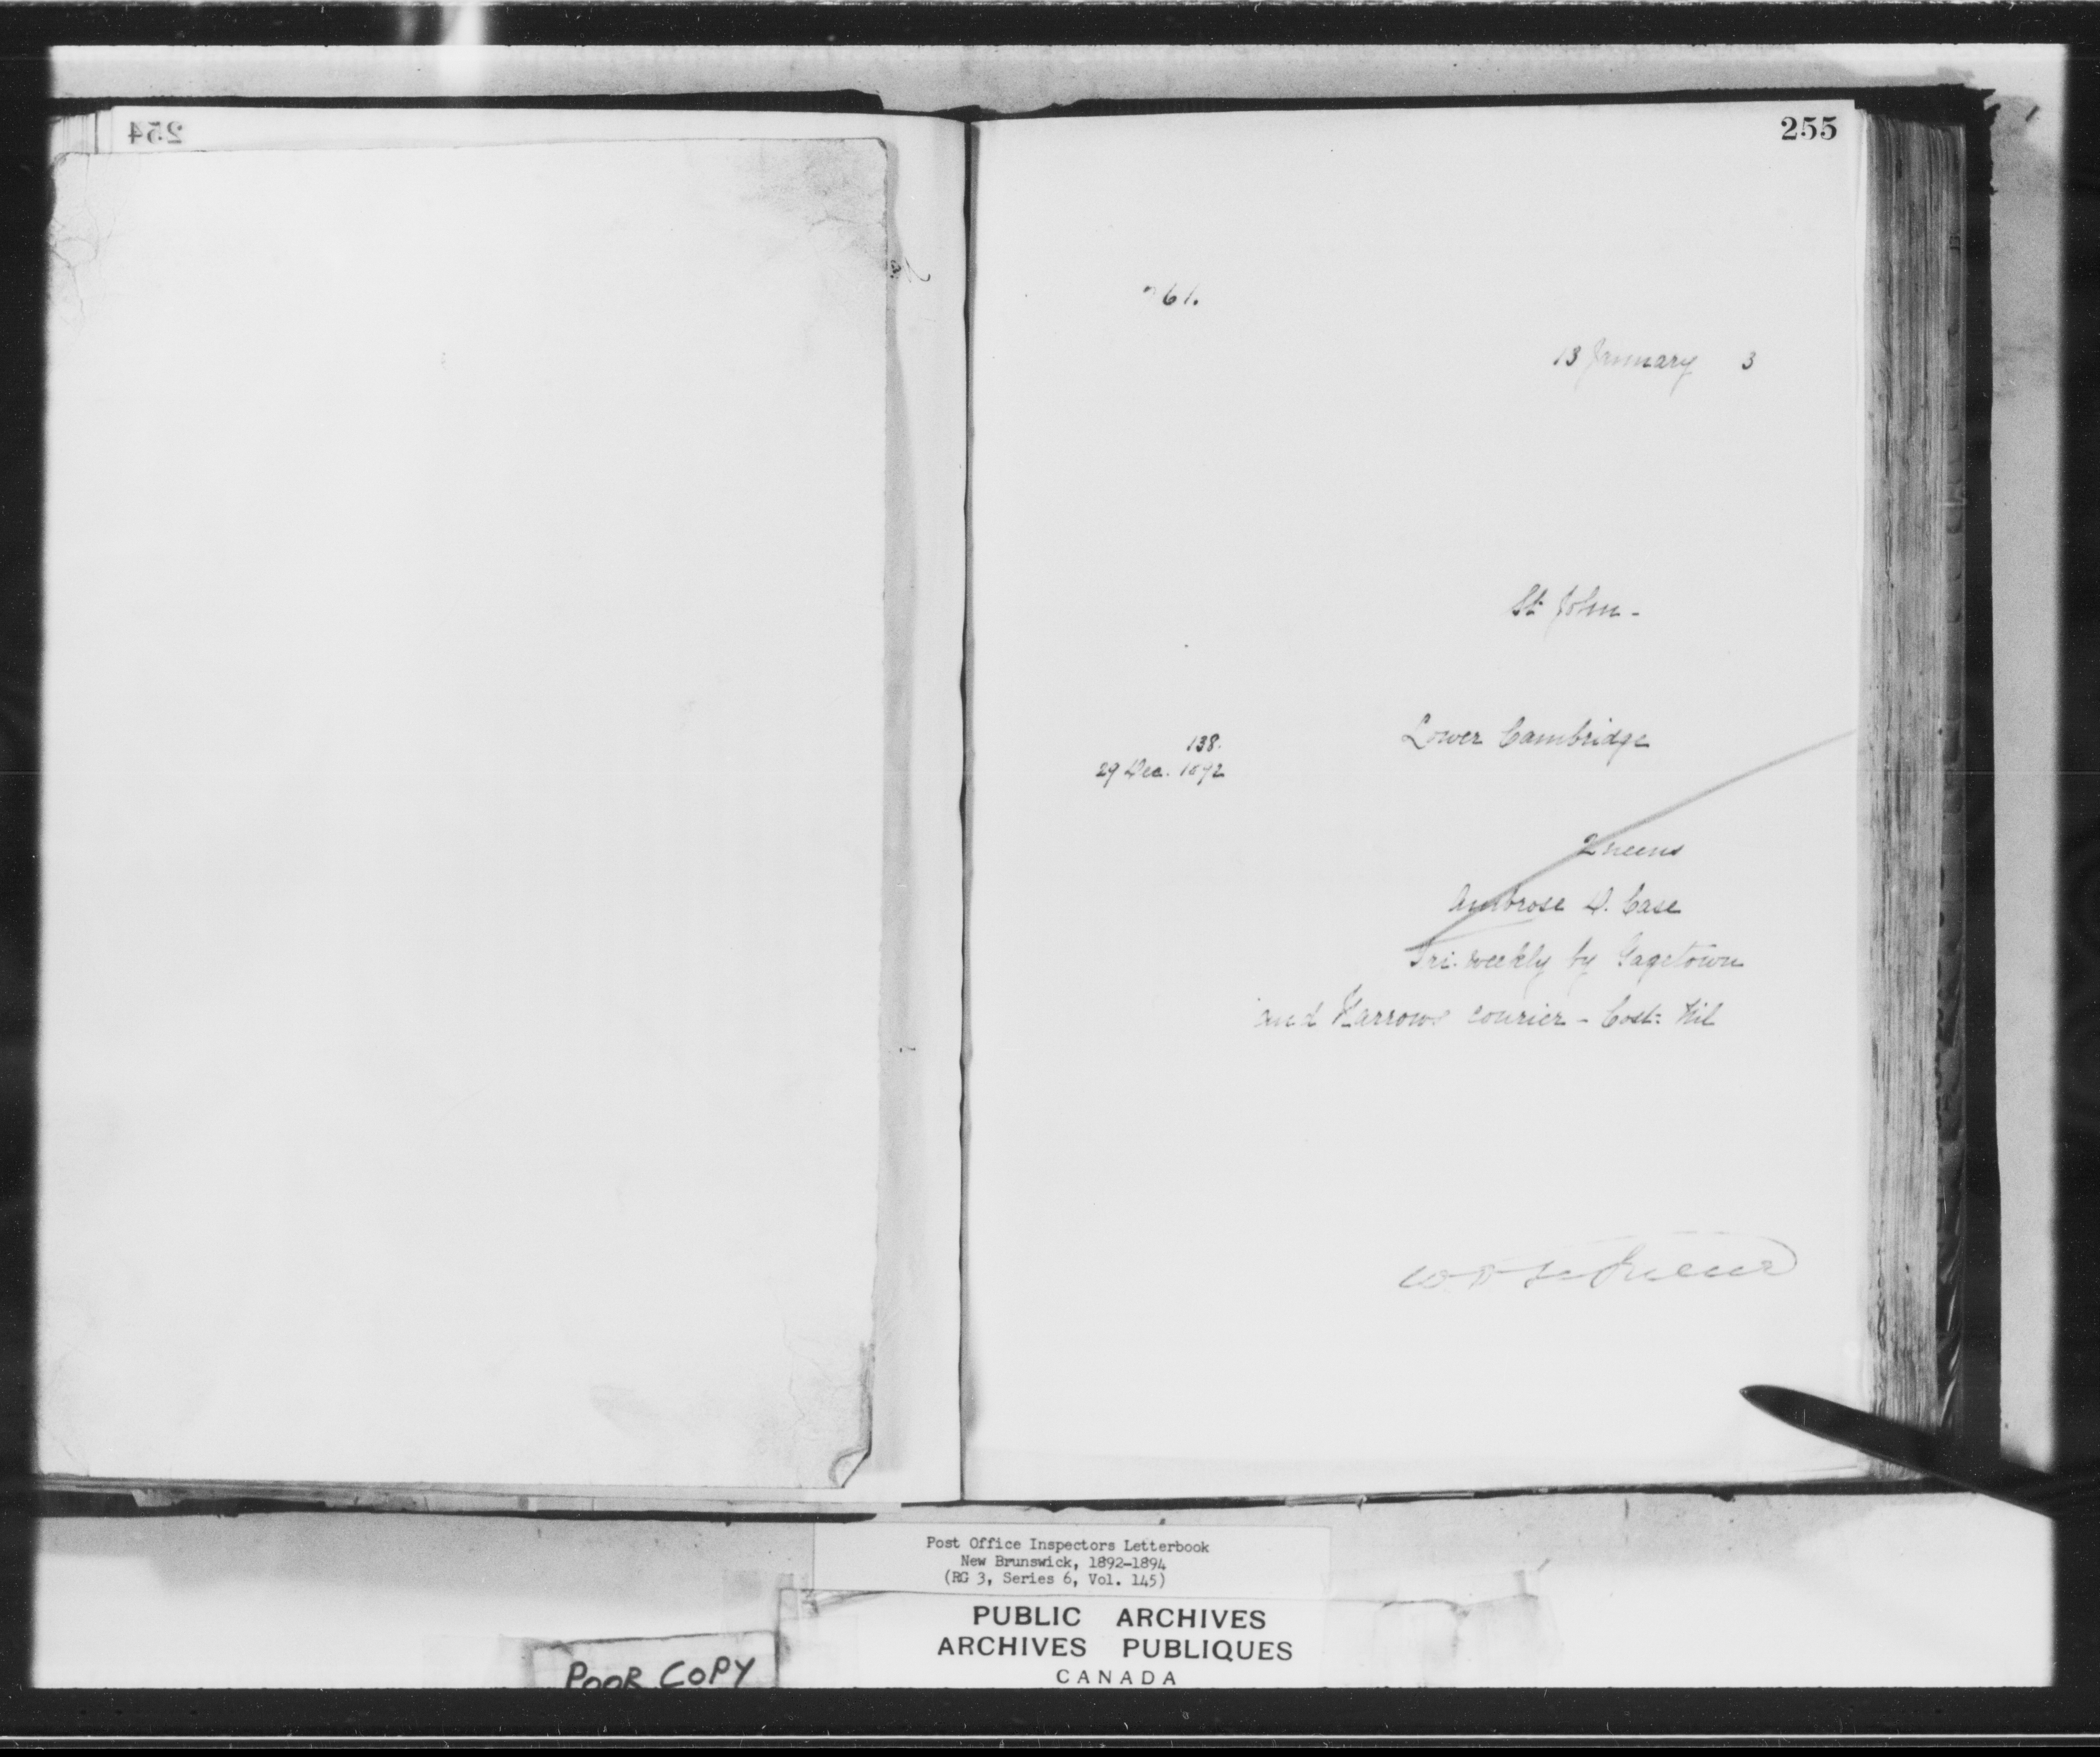 254
255
761.
13 January 3
St John -
138.
29 Dec. 1892
Lower Cambridge
Queens
Ambrose D. Case
Tri-weekly by Gagetown
and Narrows courier - Cost: Nil
Post Office Inspectors Letterbook
New Brunswick, 1892-1894
(RG 3, Series 6, Vol. 145)
PUBLIC ARCHIVES
ARCHIVES PUBLIQUES
CANADA
POOR COPY